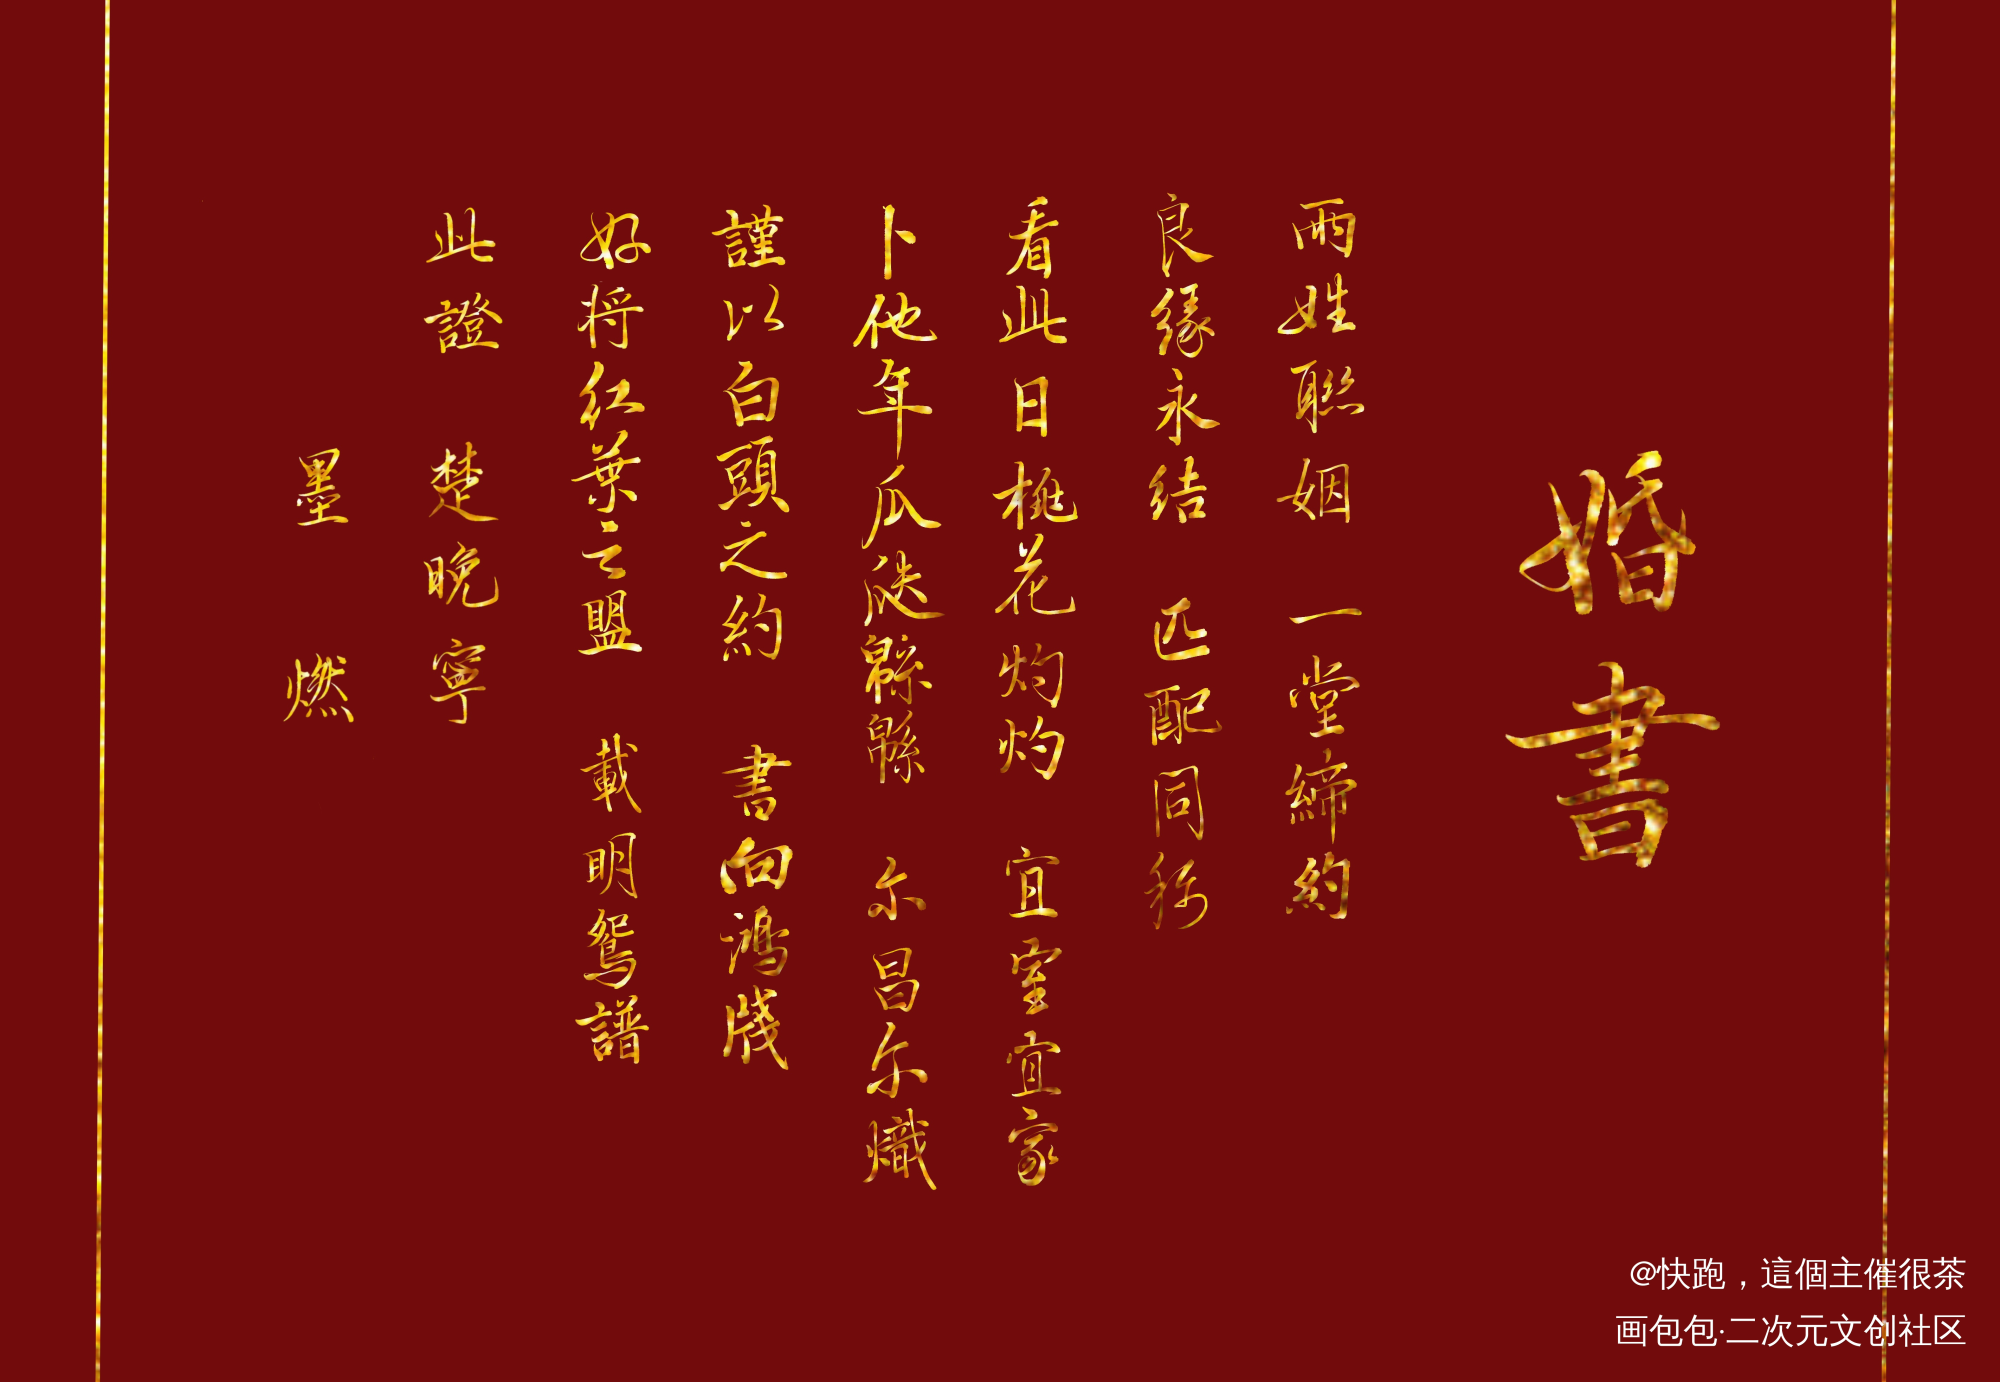 婚書
兩姓聯姻 一堂締約
良緣永结 匹配同称
看此日桃花灼灼 宜室宜家
卜他年瓜瓞緜緜 尔昌尔熾
謹以白頭之約 書向鸿牋
好将红葉之盟 載明鴛譜
此證 楚晚寧
墨 燃
@快跑，這個主催很茶
画包包·二次元文创社区